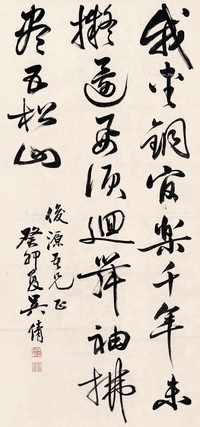 我爱铜官乐千年未
拟还要须回舞袖拂
尽五松山
俊源吾兄正
癸卯夏吴倩